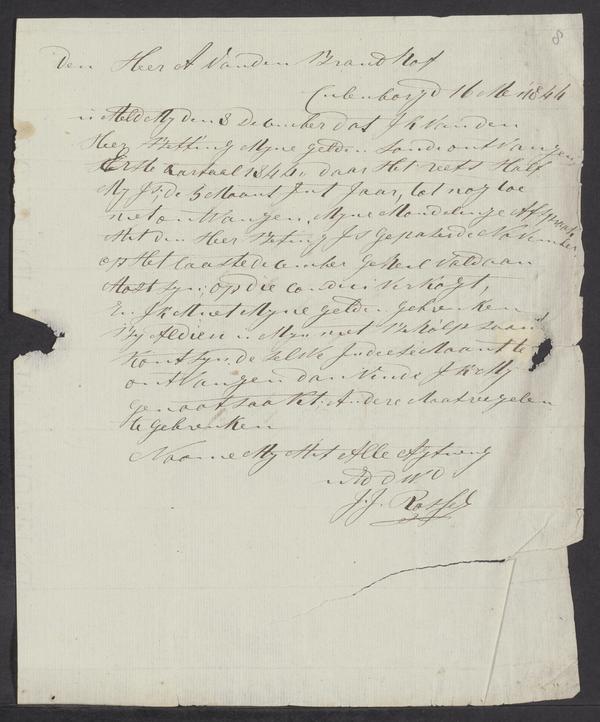 8
Den Heer A Vanden Brandhof
Culenborgd 16 Mei 1844
u Meldt My den 8 December dat Ik Van den
Heer Betting Myne gelden Soude ont Vangen
Erste kartaal 1844, daar Het reets Half
My Is, de 5 Maant Int Jaar, tot nog toe
niet ontVangen, Myne Mondelinge Afspraak
Met den Heer Beting Is gepaseerde November
op Het laaste december geheel Voldaan
Most Syn, op die Condisi Verkogt,
En Ik Moet Myne gelden gebreuken
By Aldien u Myn niet Behulpsaam
kont Syn de Selve In deese Maant te
ont Vangen dan Vinde Ik My
genootsaakt Andere Maatreegelen
te gebreuken
Noome My Met Alle Agting
UEd d W D
J. J. Rossel